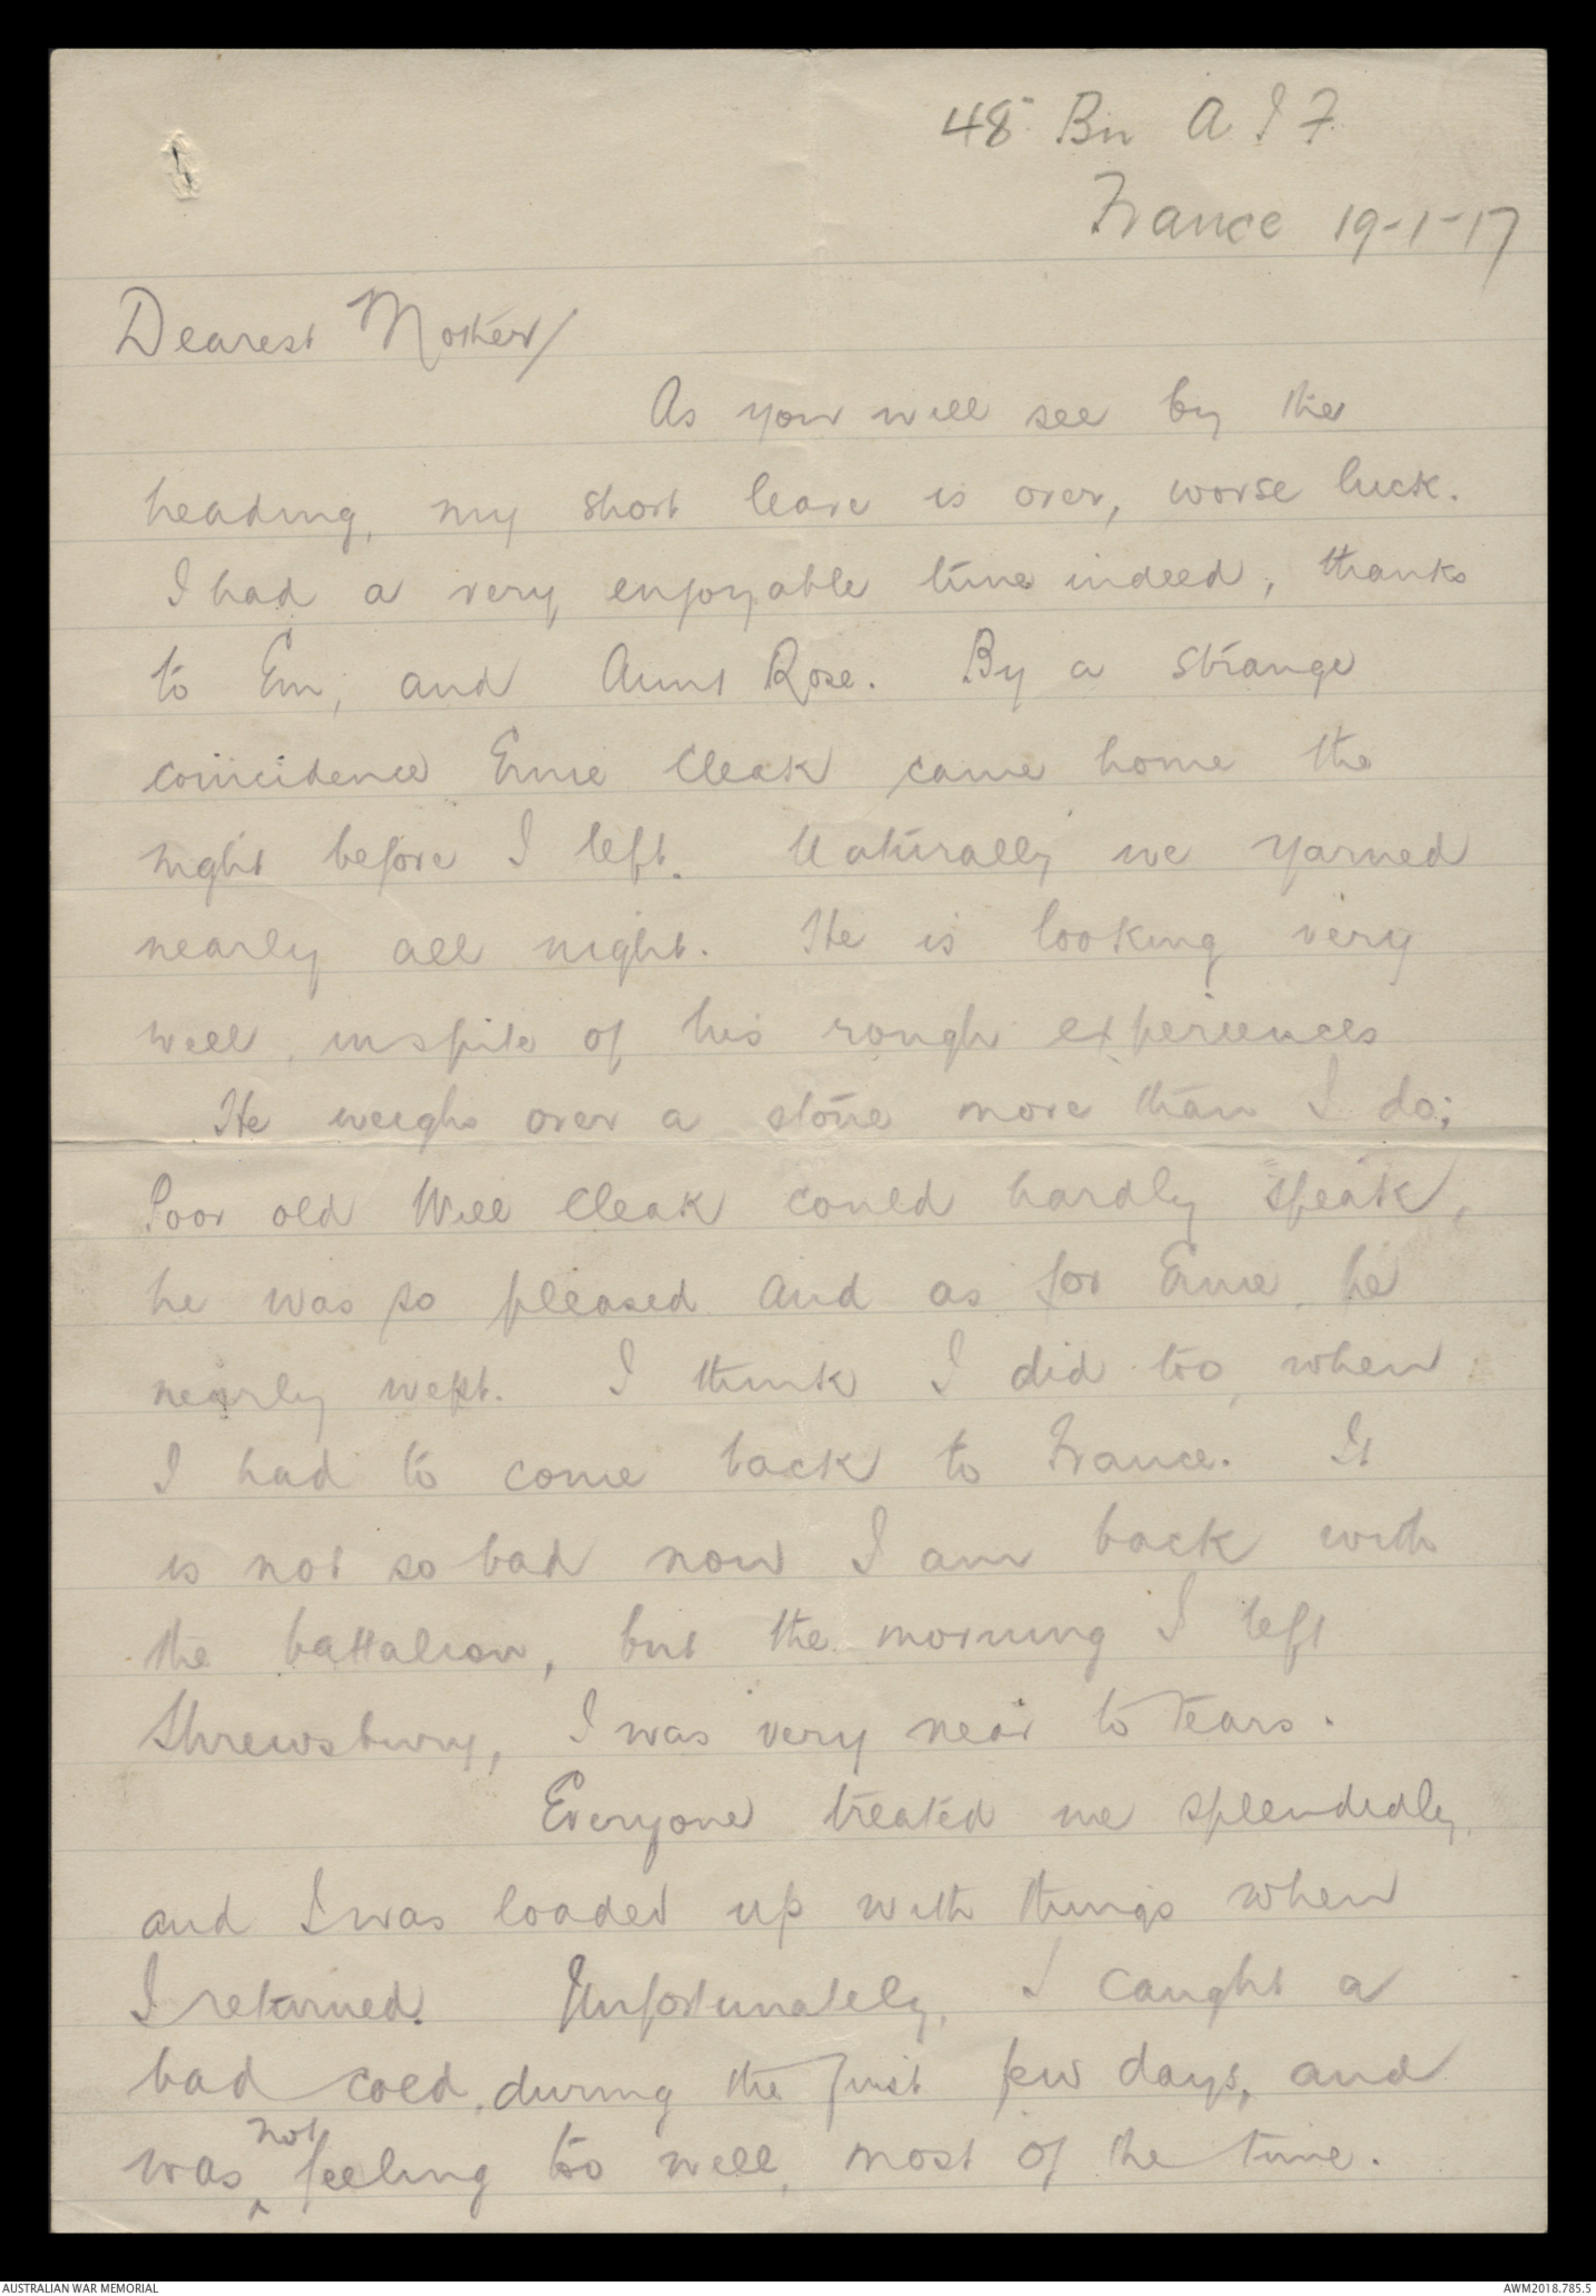 48 Bn A I F
France 19-1-17
Dearest Mother/
As you will see by the
heading, my short leave is over, worse luck.
I had a very enjoyable time indeed, thanks
to Em, and Aunt Rose. By a strange
coincidence Ernie Cleak came home the
night before I left. Naturally we yarned
nearly all night. He is looking very
well, inspite of his rough experiences
He weighs over a stone more than I do;
Poor old Will Cleak could hardly speak,
he was so pleased and as for Ernie, he
nearly wept. I think I did too, when
I had to come back to France. It
is not so bad now I am back with
the battalion, but the morning I left
Shrewsbury, I was very near to tears.
Everyone treated me splendidly,
and I was loaded up with things when
I returned. Unfortunately, I caught a
bad cold, during the first few days, and
was not feeling too well, most of the time.
AUSTRALIAN WAR MEMORIAL
AWM2018.785.5